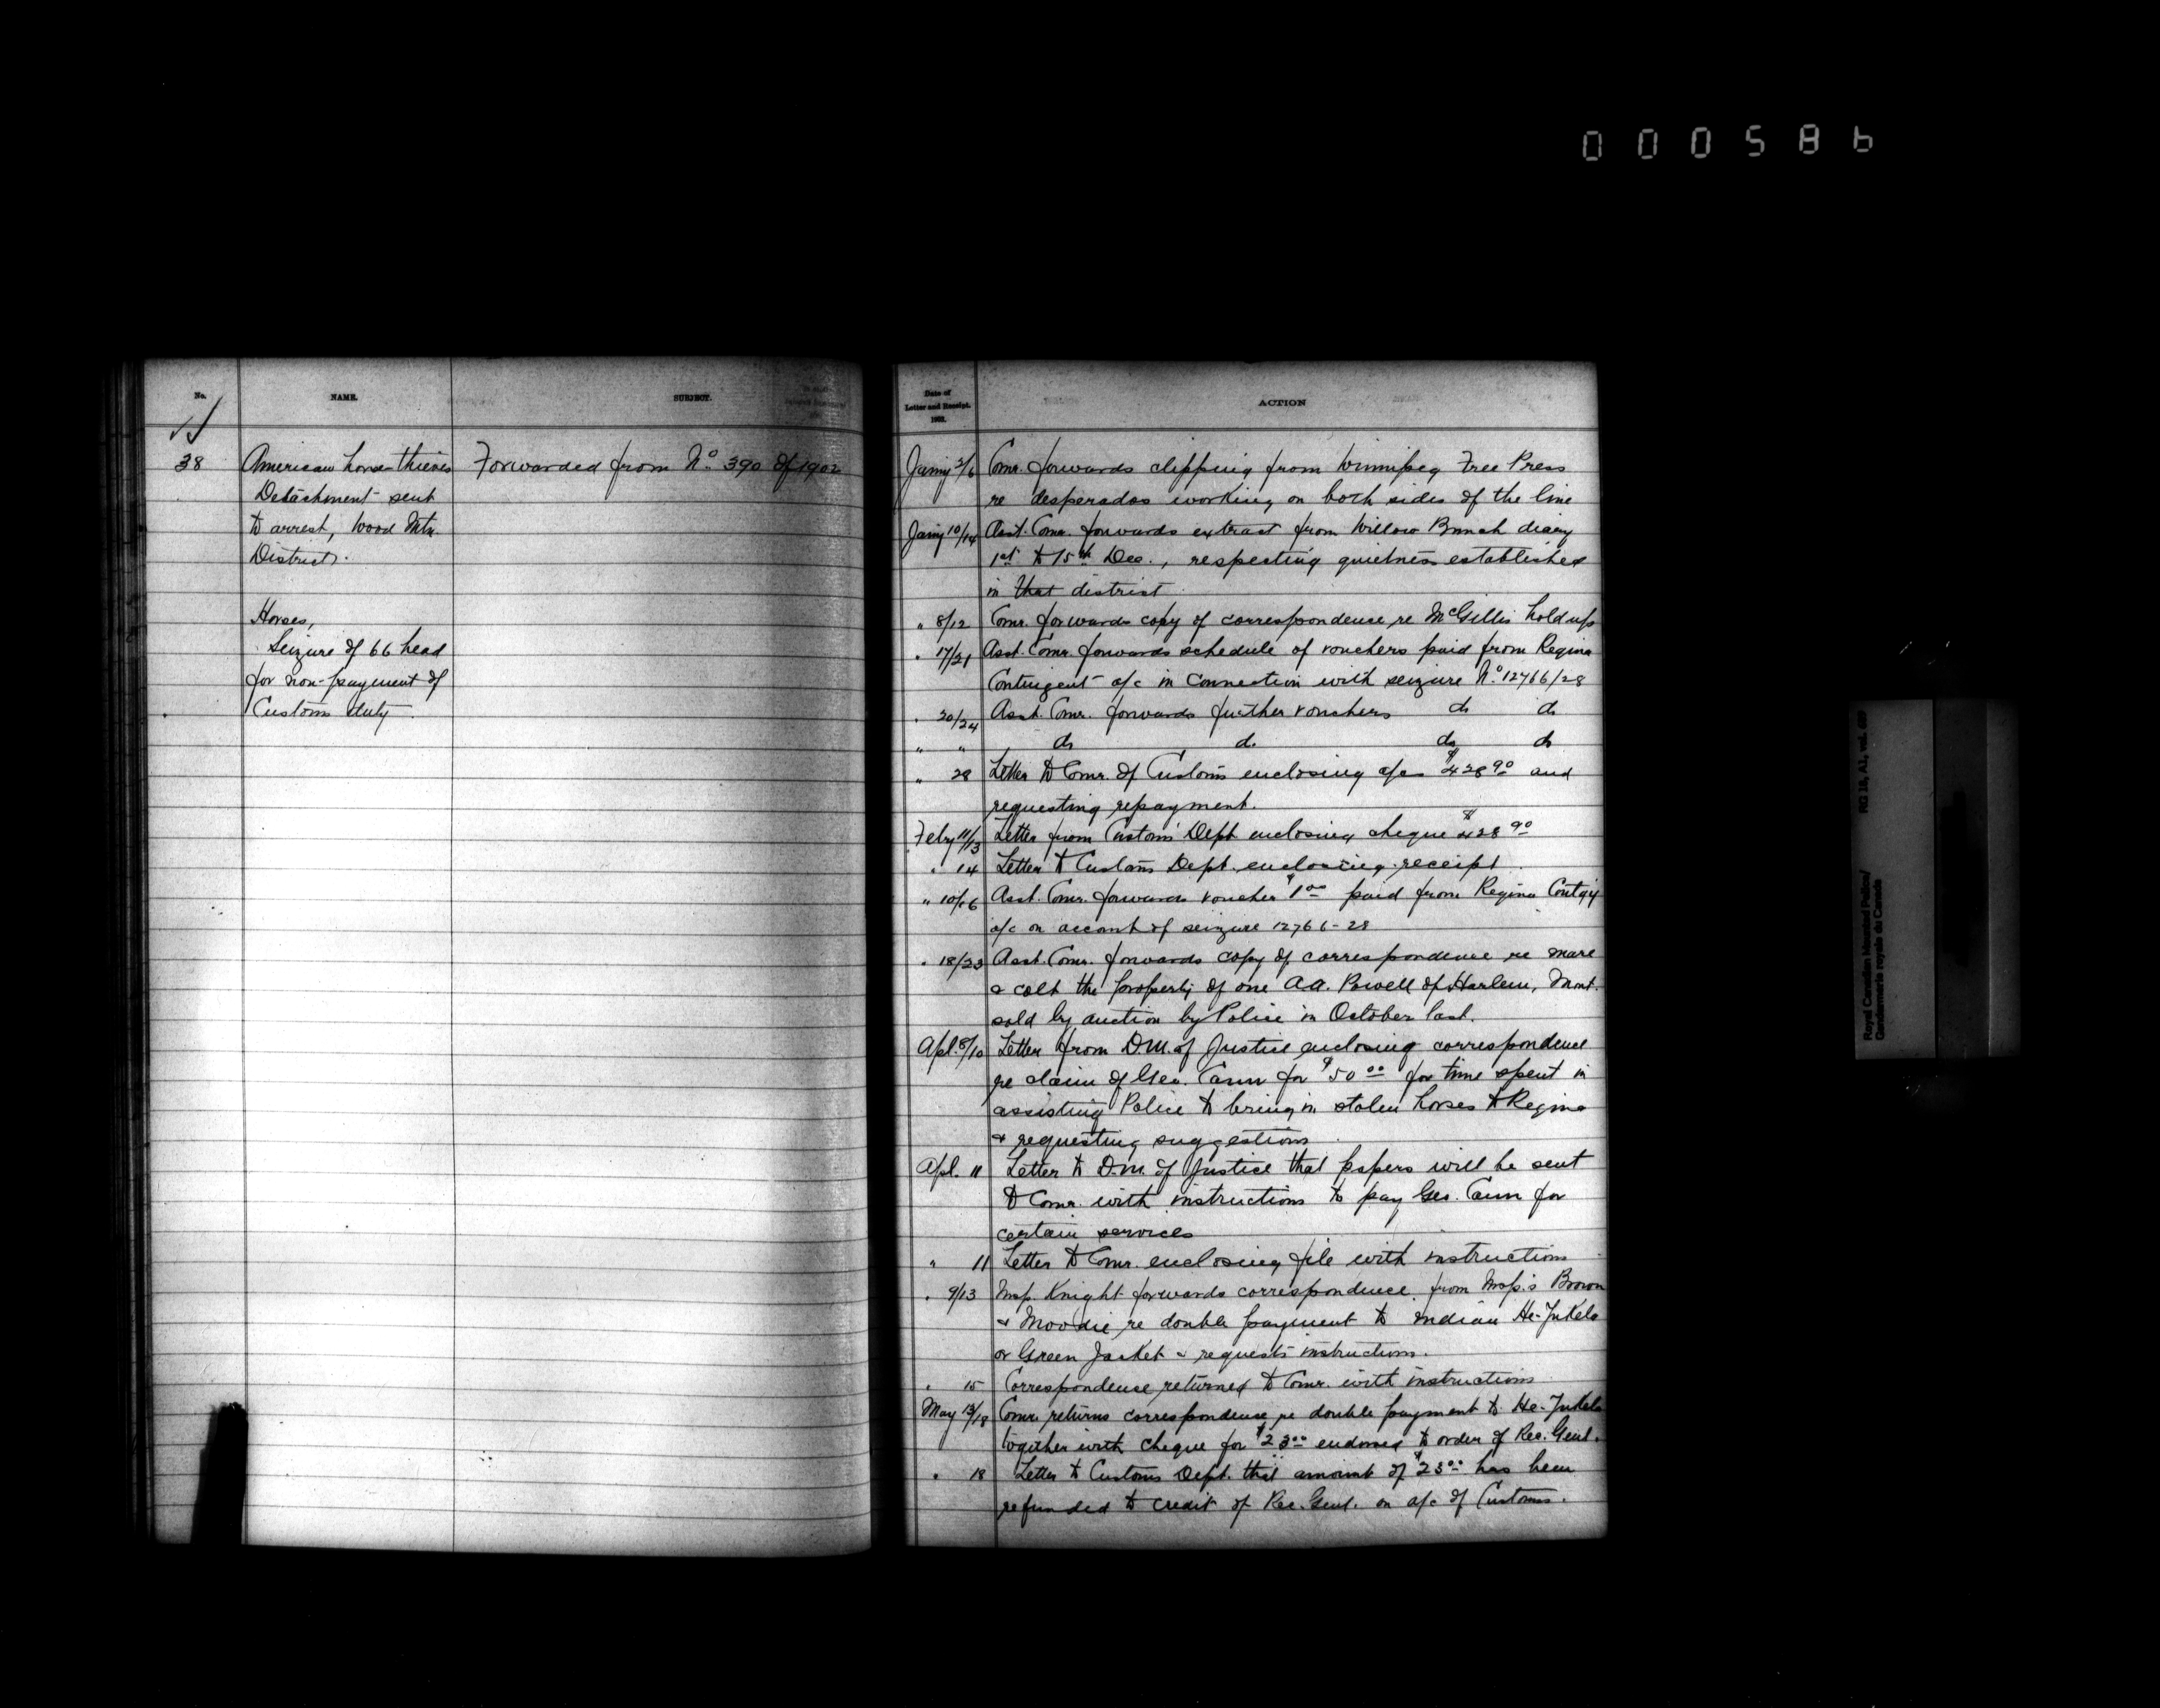 000586
No.
NAME.
SUBJECT.
38
American horse-thieves
Detachment sent
to arrest, Wood Mtn.
District.
Forwarded from No. 390 of 1902
Horses,
Seizure of 66 head
for non-payment of
Customs duty.
Date of
Letter and Receipt.
1903.
ACTION
Jany 2/6 Comr. forwards clipping from Winnipeg Free Press
re desperados working on both sides of the line
Jany 10/14 Asst. Comr. forwards extract from Willow Bunch diary
1st to 15th Dec., respecting quietness established
in that district
" 8/12 Comr. forwards copy of correspondence re McGillis hold up
" 17/21 Asst. Comr. forwards schedule of vouchers paid from Regina
Contingent a/c in connection with seizure No. 12766/28
" 20/24 Asst. Comr. forwards further vouchers do do
" " do do do do
" 28 Letter to Comr. of Customs enclosing a/cs $428 90 and
requesting repayment.
Feby 11/13 Letter from Customs Dept enclosing cheque $428 90
" 14 Letter to Customs Dept. enclosing receipt
" 10/16 Asst. Comr. forwards voucher $1 00 paid from Regina Contg'y
a/c on account of seizure 12766-28
" 18/23 Asst. Comr. forwards copy of correspondence re mare
& colt the property of one A.A. Powell of Harlem, Mont.
sold by auction by Police in October last.
Apl. 8/10 Letter from D.M. of Justice enclosing correspondence
re claim of Geo. Cann for $50 00 for time spent in
assisting Police to bring in stolen horses to Regina
& requesting suggestions
Apl. 11 Letter to D.M. of Justice that papers will be sent
to Comr. with instructions to pay Geo. Cann for
certain services
" 11 Letter to Comr. enclosing file with instructions
" 9/13 Insp. Knight forwards correspondence from Insp's Brown
& Moodie re double payment to Indian He-Jukela
or Green Jacket & requests instructions.
" 15 Correspondence returned to Comr. with instructions
May 13/18 Comr. returns correspondence re double payment to He-Jukela
together with cheque for $23 00 endorsed to order of Rec. Genl.
" 18 Letter to Customs Dept. that amount of $23 00 has been
refunded to credit of Rec. Genl. on a/c of Customs.
Royal Canadian Mounted Police/
Gendarmerie royale du Canada
RG 18, A1, vol.